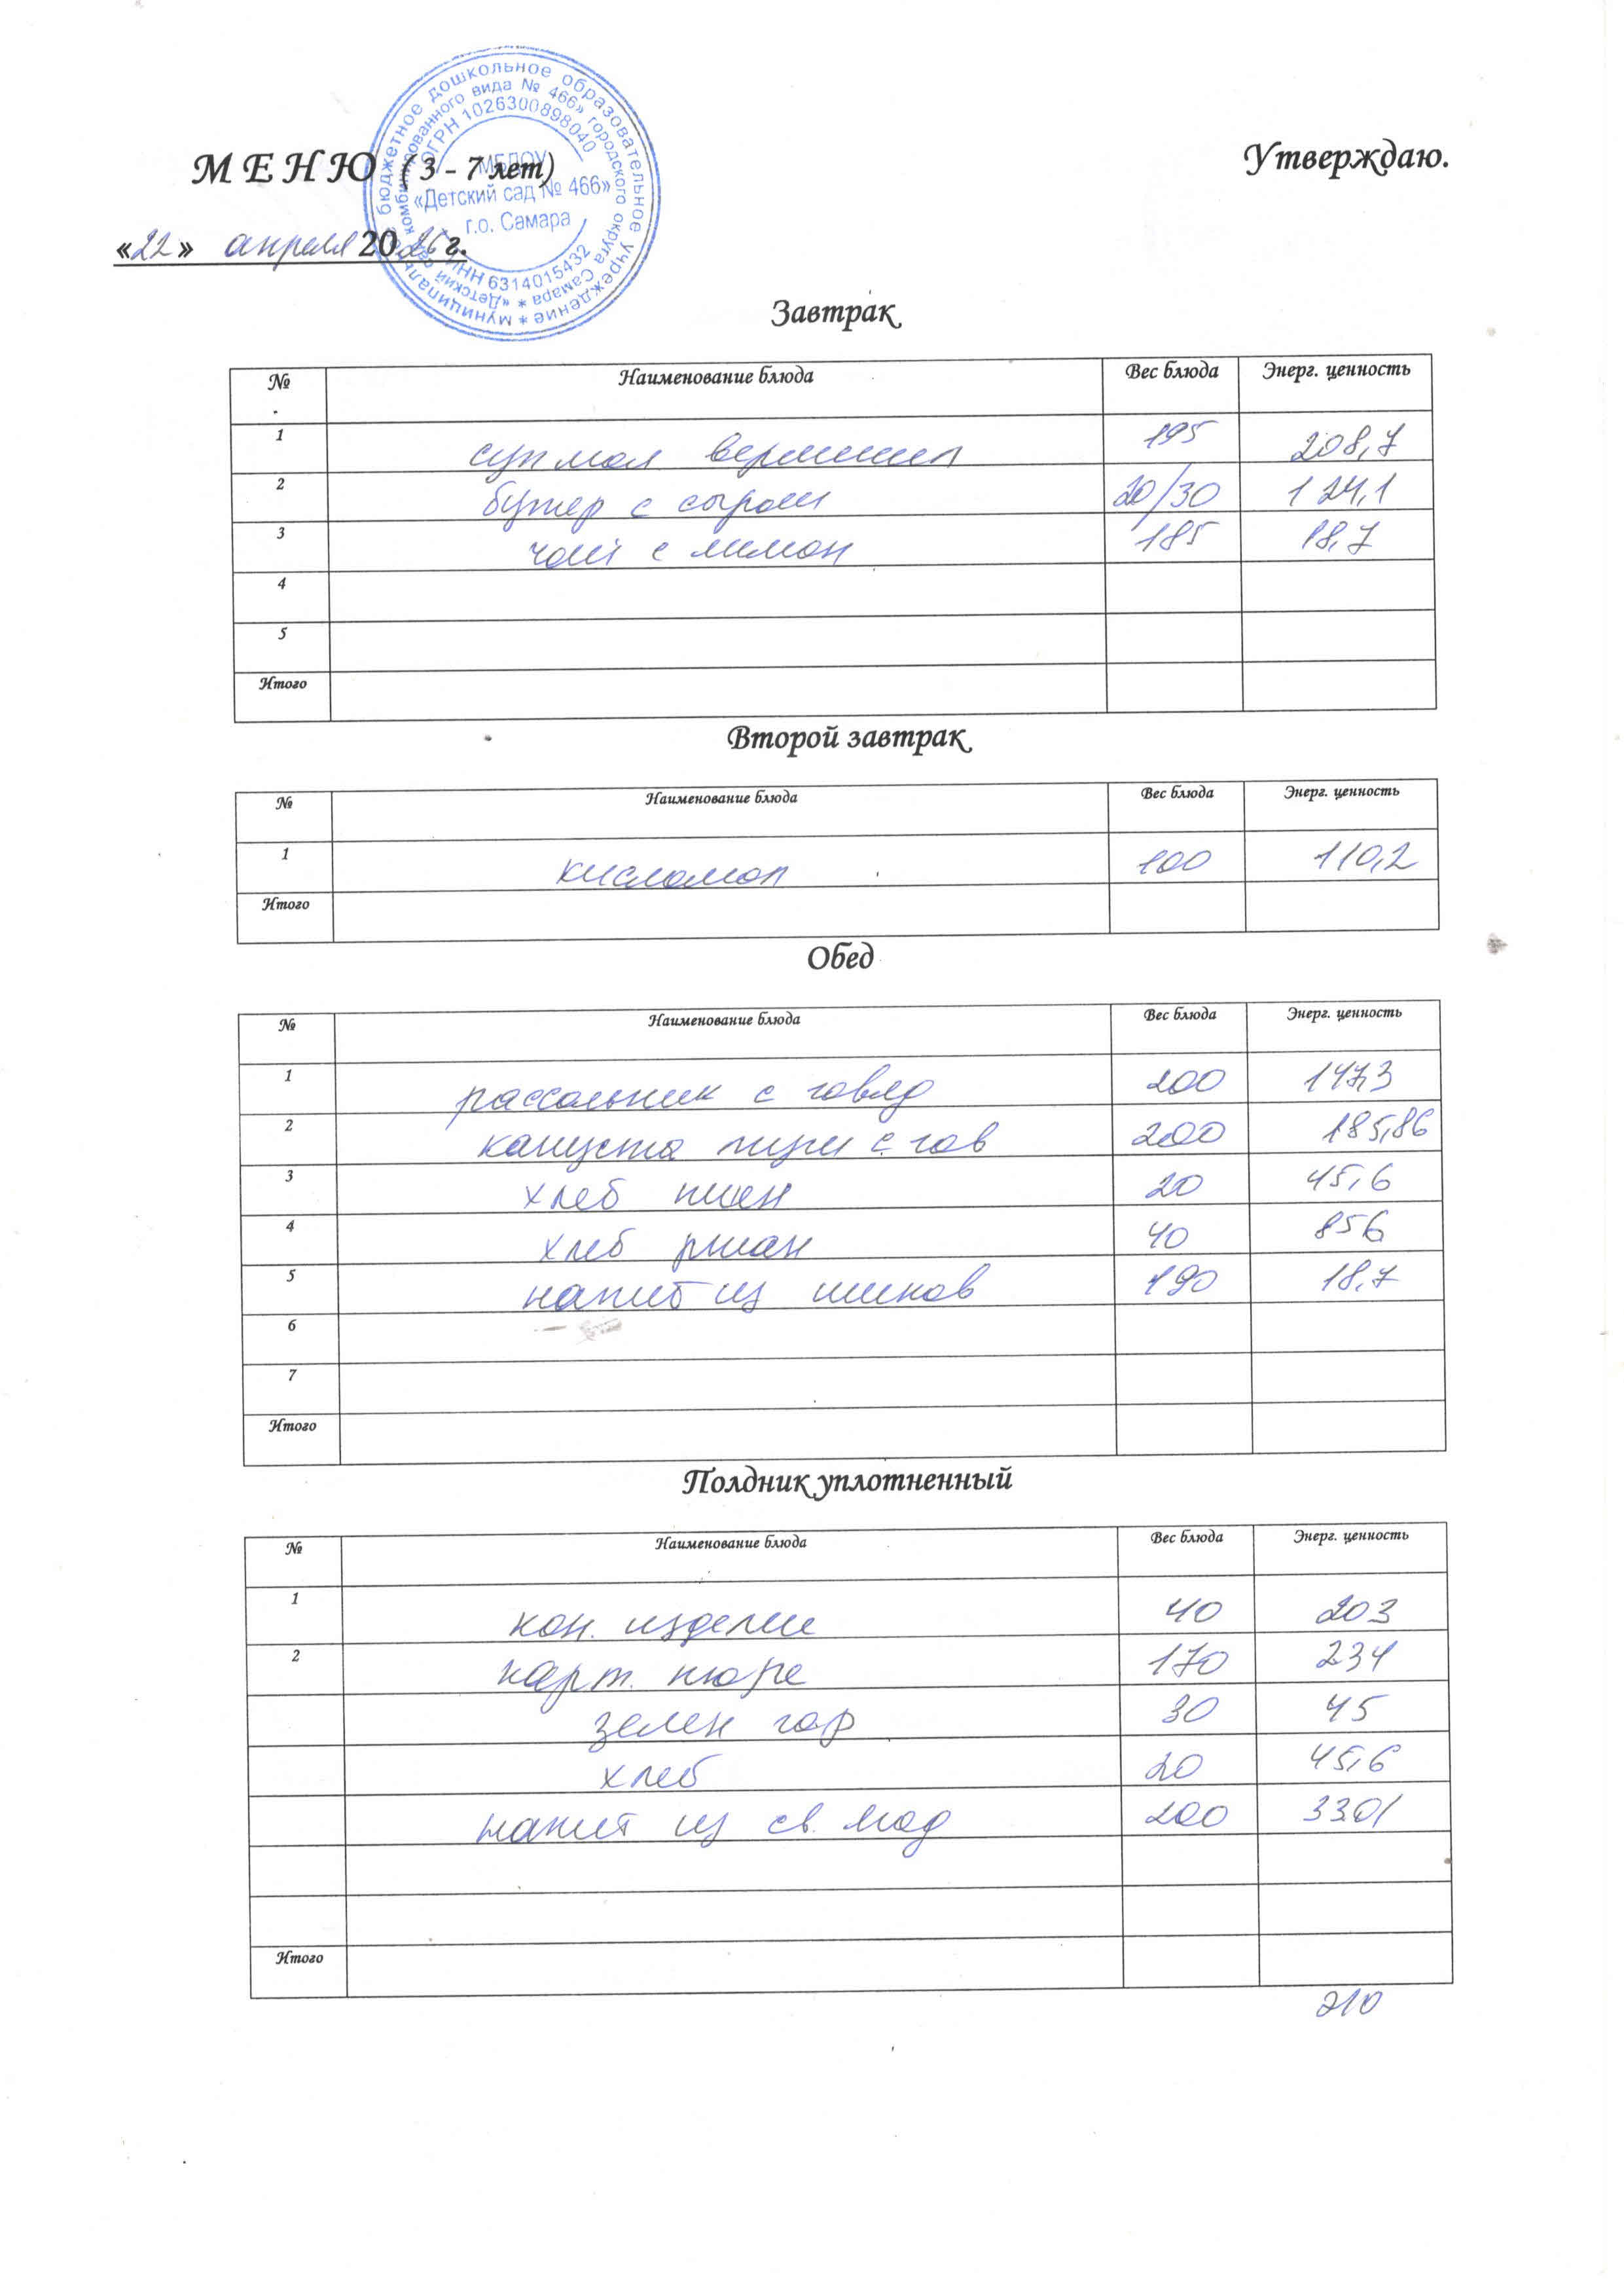 Утверждаю.
М Е Н Ю ( 3 - 7 лет)
«22» апреля 2026 г.
муниципальное бюджетное дошкольное образовательное учреждение *
«Детский сад комбинированного вида № 466» городского округа Самара *
ОГРН 1026300898040
МБДОУ
«Детский сад № 466»
г.о. Самара
ИНН 6314015432
Завтрак
№ Наименование блюда Вес блюда Энерг. ценность
1 суп мол вермишел 195 208,7
2 бутер с сыром 20/30 124,1
3 чай с лимон 185 18,7
4
5
Итого
Второй завтрак
№ Наименование блюда Вес блюда Энерг. ценность
1 кисломол 100 110,2
Итого
Обед
№ Наименование блюда Вес блюда Энерг. ценность
1 рассольник с говяд 200 147,3
2 капуста туш с гов 200 185,86
3 хлеб пшен 20 45,6
4 хлеб ржан 40 856
5 напит из шипов 190 18,7
6
7
Итого
Полдник уплотненный
№ Наименование блюда Вес блюда Энерг. ценность
1 кон. изделие 40 203
2 карт. пюре 170 234
зелен гор 30 45
хлеб 20 45,6
напит из св. 200 3301
Итого
210